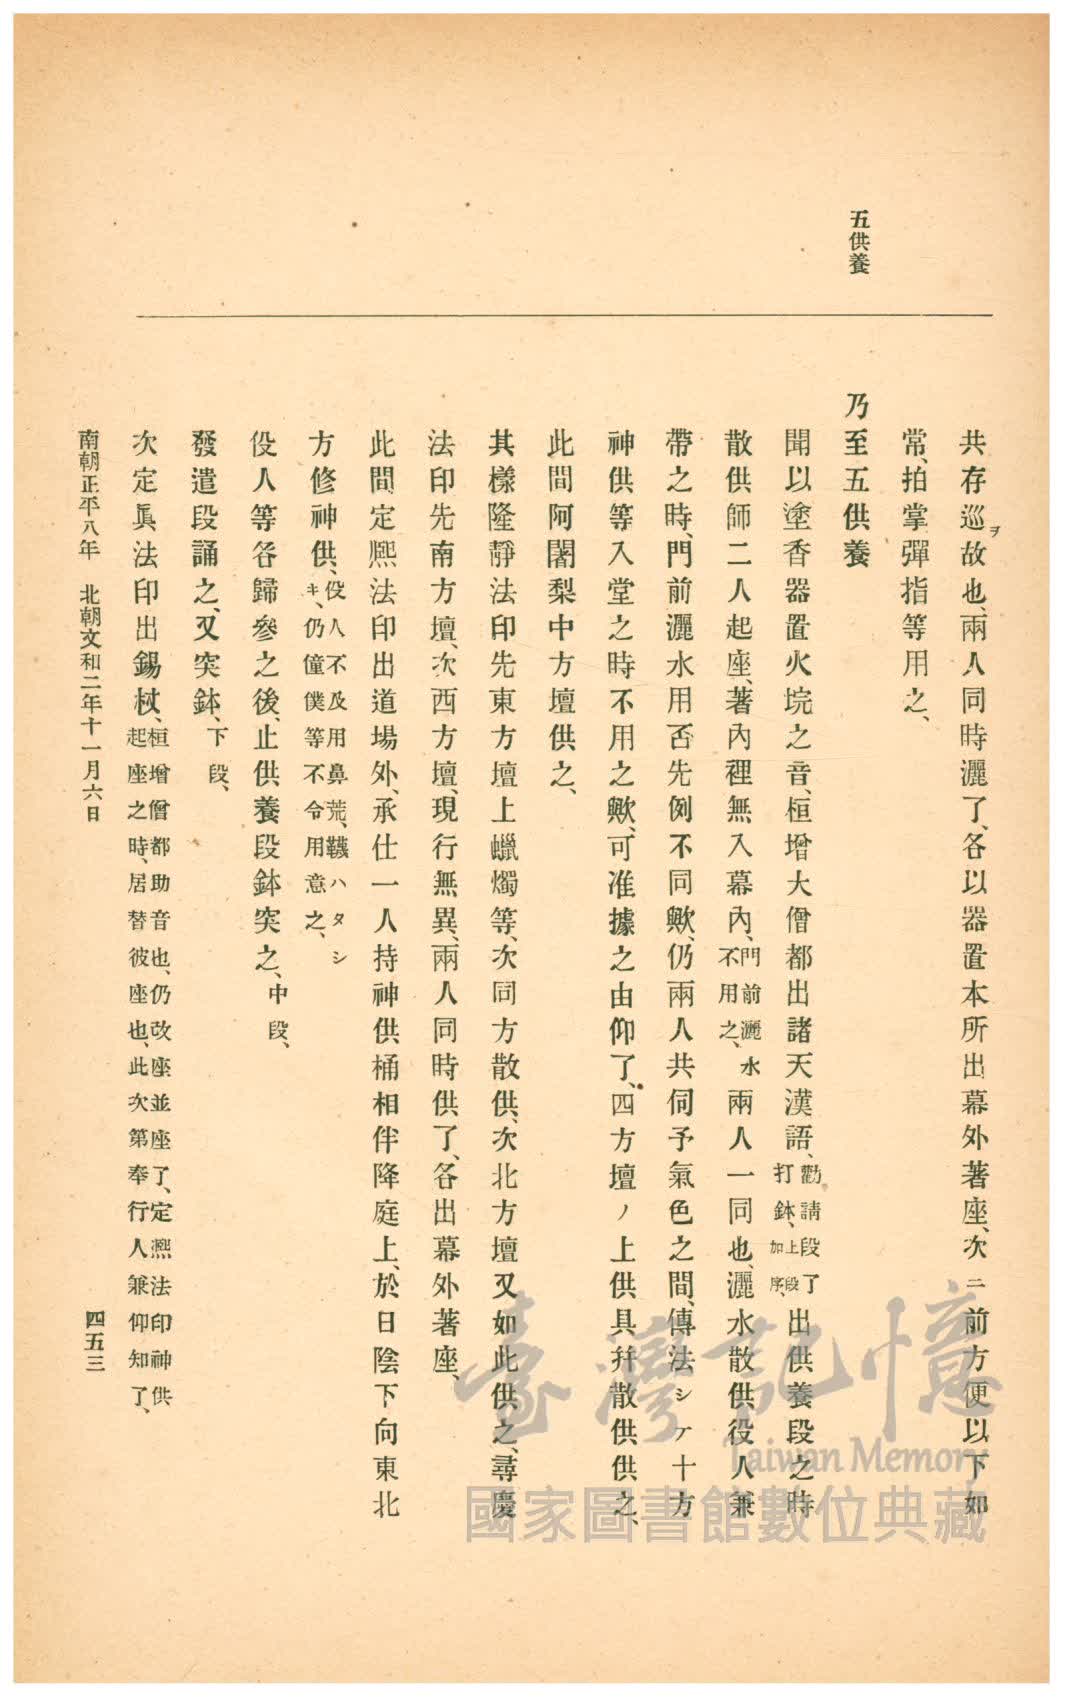 五供養
共存巡ヲ故也、兩人同時灑了、各以器置本所出幕外著座、次ニ前方便以下如
常、拍掌彈指等用之、
乃至五供養
聞以塗香器置火垸之音、桓增大僧都出諸天漢語、勸請段了打鉢、上段加序、出供養段之時
散供師二人起座、著內裡無入幕內、門前灑水不用之、兩人一同也、灑水散供役人兼
帶之時、門前灑水用否先例不同歟、仍兩人共伺予氣色之間、傳法シテ十方
神供等入堂之時不用之歟、可准據之由仰了、四方壇ノ上供具幷散供供之、
此間阿闍梨中方壇供之、
其樣隆靜法印先東方壇上蠟燭等、次同方散供、次北方壇又如此供之、尋慶
法印先南方壇、次西方壇、現行無異、兩人同時供了、各出幕外著座、
此間定凞法印出道場外、承仕一人持神供桶相伴降庭上、於日陰下向東北
方修神供、役人不及用鼻荒、韈ハタシキ、仍僮僕等不令用意之、
役人等各歸參之後、止供養段鉢突之、中段、
發遣段誦之、又突鉢、下段、
次定眞法印出錫杖、桓增僧都助音也、仍改座並座了、定凞法印神供起座之時、居替彼座也、此次第奉行人兼仰知了、
南朝正平八年　北朝文和二年十一月六日
四五三
臺灣記憶
Taiwan Memory
國家圖書館數位典藏